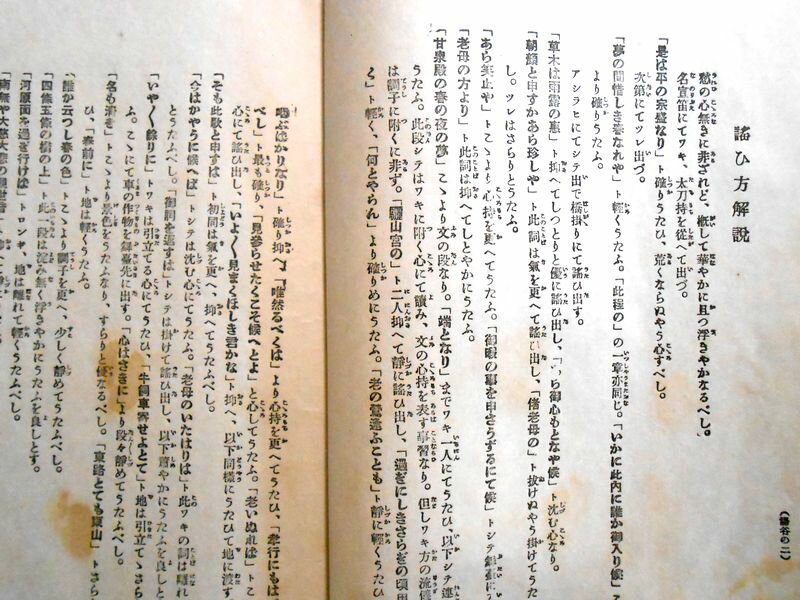 謠ひ方解說
愁の心無きに非ざれど、槪して華やかに且つ浮きやかなるべし。
名宣笛にてワキ、太刀持を從へて出づ。
「是は平の宗盛なり」ト確りうたひ、荒くならぬやう心すべし。
次第にてツレ出づ。
「夢の間惜しき春なれや」ト輕くうたふ。「此程の」の一章亦同じ。「いかに此內に誰か御入り候」
より確りうたふ。
アシラヒにてシテ出で橋掛りにて謠ひ出す。
「草木は雨露の惠」ト抑へてしつとりと優に謠ひ出し、「御心もとなや候」ト沈む心なり。
「朝顏と申すかあら珍しや」ト此詞は氣を更へて謠ひ出し、「倦老母の」ト拔けぬやう掛けてうた
し。ツレはさらりとうたふ。
「あら笑止や」トこゝより心持を更へてうたふ。「御暇の事を申さうずるにて候」トシテ
「老母の方より」ト此詞は抑へてしとやかにうたふ。
「甘泉殿の春の夜の夢」こゝより文の段なり。「端となり」までワキ一人にてうたひ、以下シテ連
うたふ。此段シテはワキに附く心にて讀み、文の心持を表す事習なり。但しワキ方の流儀
は調子に附くに非ず。「驪山宮の」ト二人抑へて靜に謠ひ出し、「過ぎにしきさらぎの頃
く」ト輕く、「何とやらん」より確りめにうたふ。「老の鶯逢ふことも」ト靜に輕くうたひ
喞ぶばかりなり」ト確り抑へ、「唯然るべくは」より心持を更へてうたひ、「孝行にもは
べし」ト最も確り、「見參らせたくこそ候へとよ」と心してうたふ。「老いぬれば」トこ
心にて謠ひ出し、「いよく見まくほしき君かな」ト抑へ、以下同樣にうたひて地に渡す
「そも此歌と申すは」ト初同は氣を更へ、抑へてうたふべし。
「今はかやうに候へば」トシテは沈む心にてうたふ。「老母のいたはりは」ト此ワキの詞は離れ
とうたふべし。「御詞を返すは」トシテは掛けて謠ひ出し、以下艷やかにうたふを良しと
「いやく餘りに」トワキは引立てる心にてうたひ、「牛飼車寄せよとて」ト地は引立てゝさら
ふ。こゝにて車の作物を舞臺先に出す。「心はさきに」より段々靜めてうたふべし。
「名も淸き」トこゝより景色をうたふなり、すらりと優なるべし。「東路とても東山」トさら
ひ、「春前に」ト地は輕くうたふ。
「誰か云つし春の色」トこゝより調子を更へ、少しく靜めてうたふべし。
「四條五條の橋の上」ト此一段は淀み無く浮きやかにうたふを良しとす。
「河原面を過ぎ行けば」トロンギ、地は離れて輕くうたふべし。
「南無や大慈大悲の觀世音」
（湯谷の二）